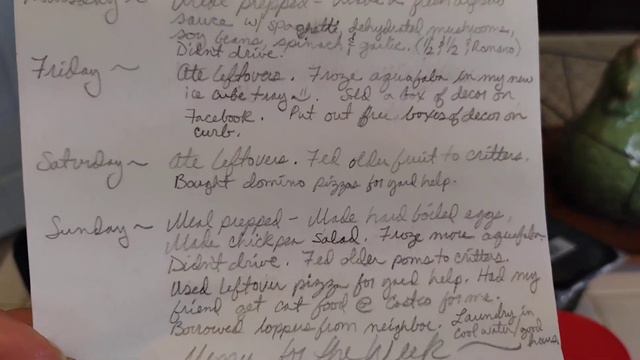 sauce w/ spaghetti, dehydrated mushrooms,
soy beans, spinach & garlic. (½ & ½ & Romano)
Didn't drive.
Friday ~ Ate leftovers. Froze aquafaba in my new
ice cube tray. Sold a box of decor on
Facebook. Put out free boxes of decor on
curb.
Saturday ~ Ate leftovers. Fed older fruit to critters.
Bought domino pizzas for yard help.
Sunday ~ Meal prepped - Made hard boiled eggs,
Made chickpea salad. Froze more aquafaba
Didn't drive. Fed older poms to critters.
Used leftover pizza for yard help. Had my
friend get cat food @ Costco for me.
Borrowed loppers from neighbor. Laundry in
cool water/good
hours
Menu for the Week